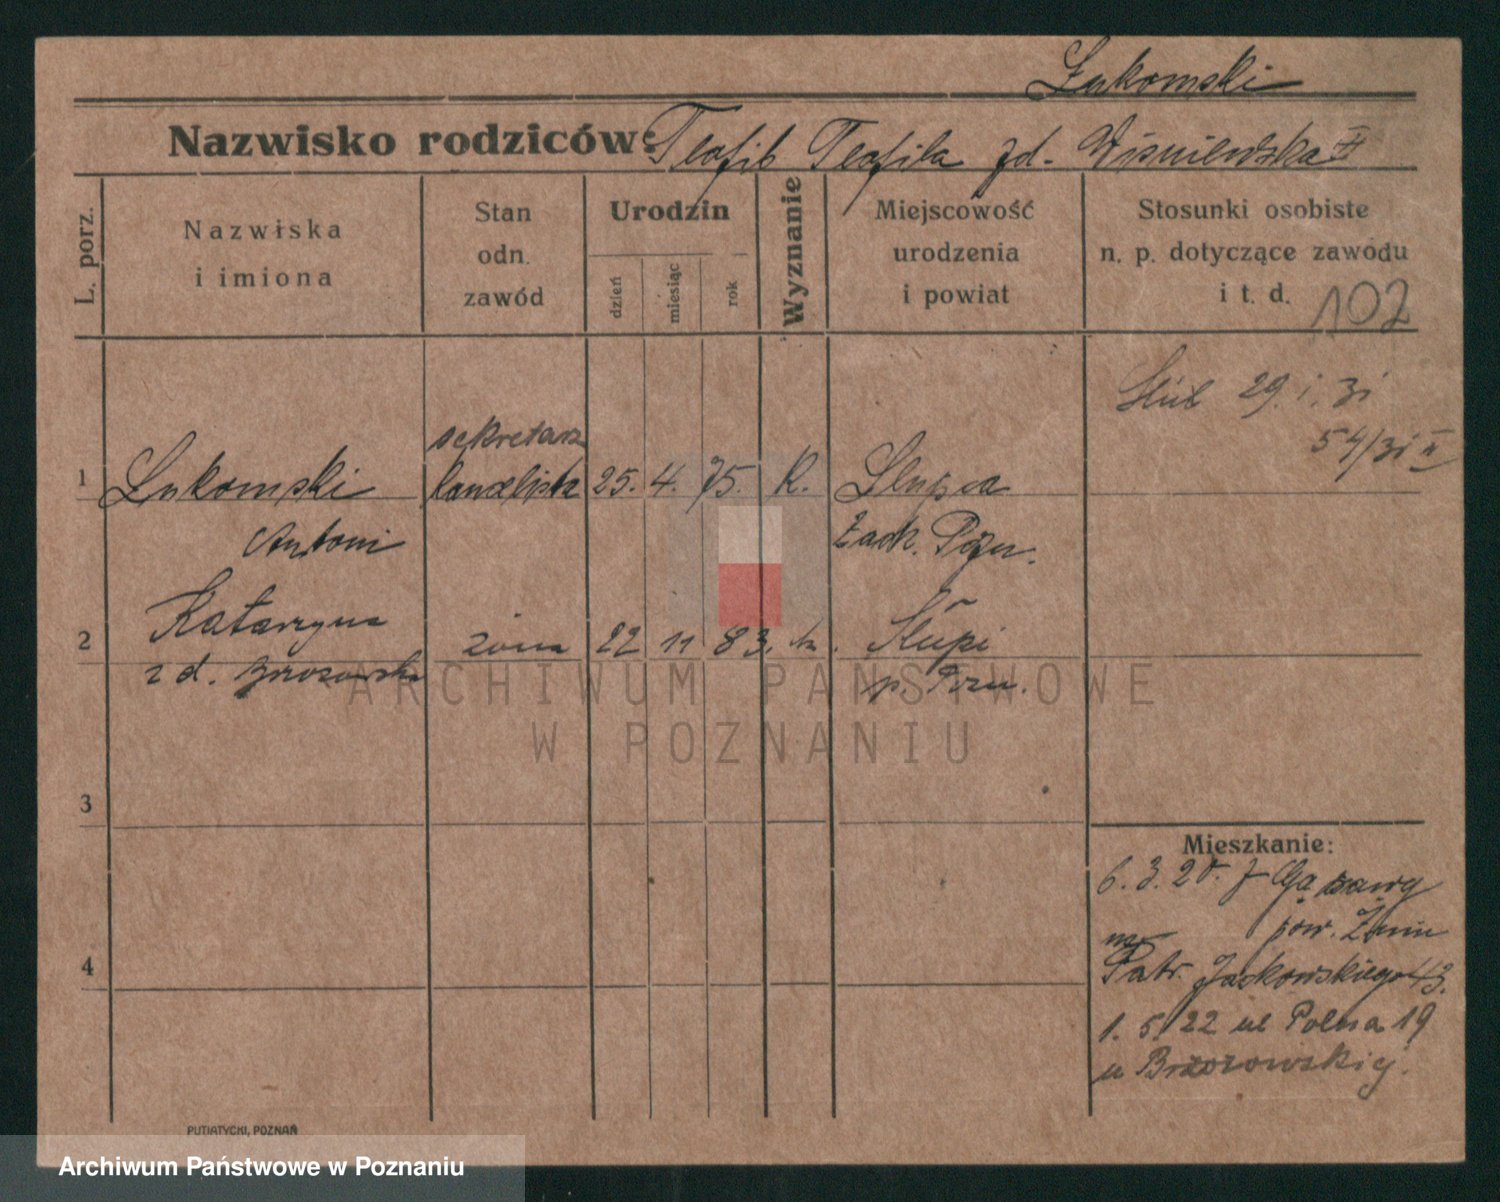 Łukomski
Nazwisko rodziców: Teofil Teofila zd. Wiśniewska
L. porz.
Nazwiska
i imiona
Stan
odn.
zawód
Urodzin
dzień
miesiąc
rok
Wyznanie
Miejscowość
urodzenia
i powiat
Stosunki osobiste
n. p. dotyczące zawodu
i t. d.
102
Ślub 29. 1. 31
54/31 II
sekretarz
1 Łukomski kancelista 25. 4. 75. K. Słupca
Antoni Zach. Pozn.
2 Katarzyna żona 22 11 83. k. Słupi
z d. Brzozowska p. Pozn.
3
4
Mieszkanie:
6. 3. 20. z Gąsawy
pow. Żnin
na
Patr. Jackowskiego 43.
1. 5. 22 ul Polna 19
u Brzozowskiej.
PUTIATYCKI, POZNAŃ
ARCHIWUM PAŃSTWOWE
W POZNANIU
Archiwum Państwowe w Poznaniu